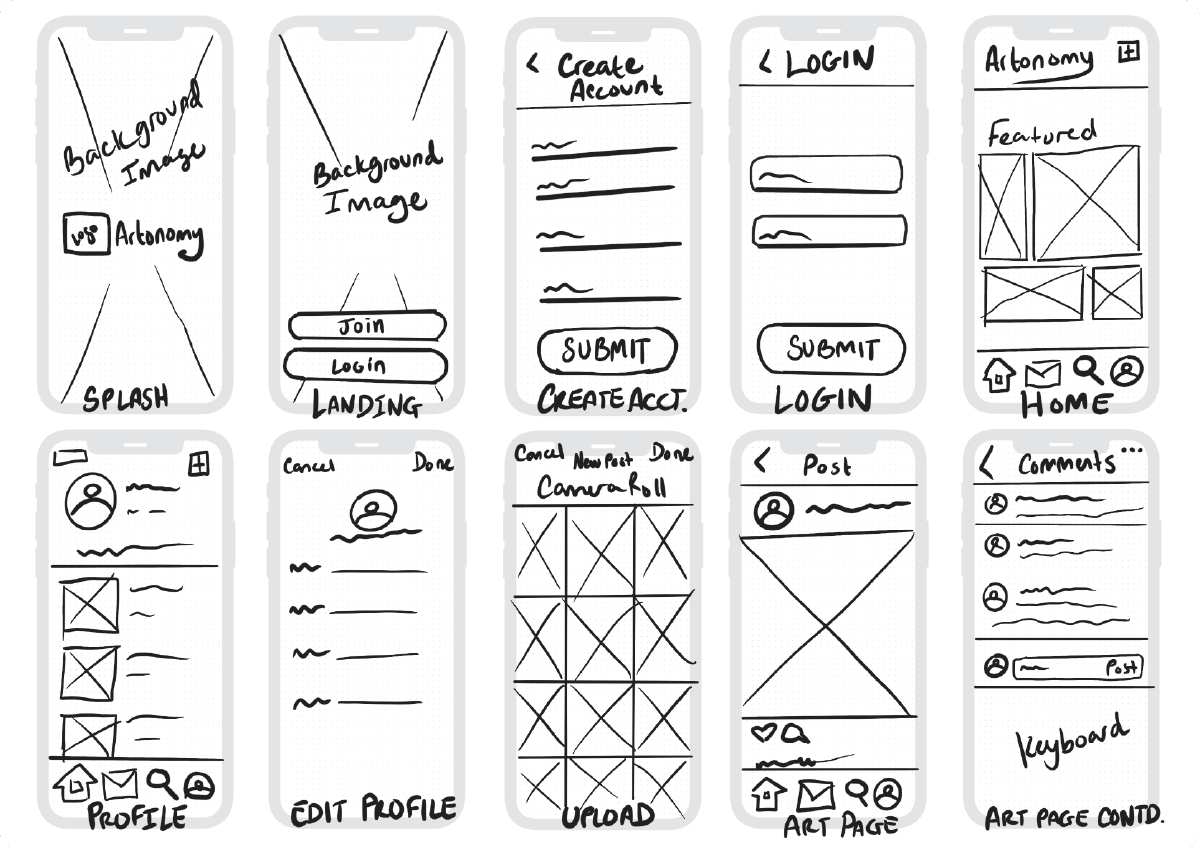 Background
Image
Artonomy
SPLASH
Background
Image
Join
Login
LANDING
Create
Account
SUBMIT
CREATE ACCT.
LOGIN
SUBMIT
LOGIN
Artonomy
Featured
HOME
PROFILE
Cancel Done
EDIT PROFILE
Cancel New Post Done
Camera Roll
UPLOAD
Post
ART PAGE
Comments
Post
Keyboard
ART PAGE CONTD.